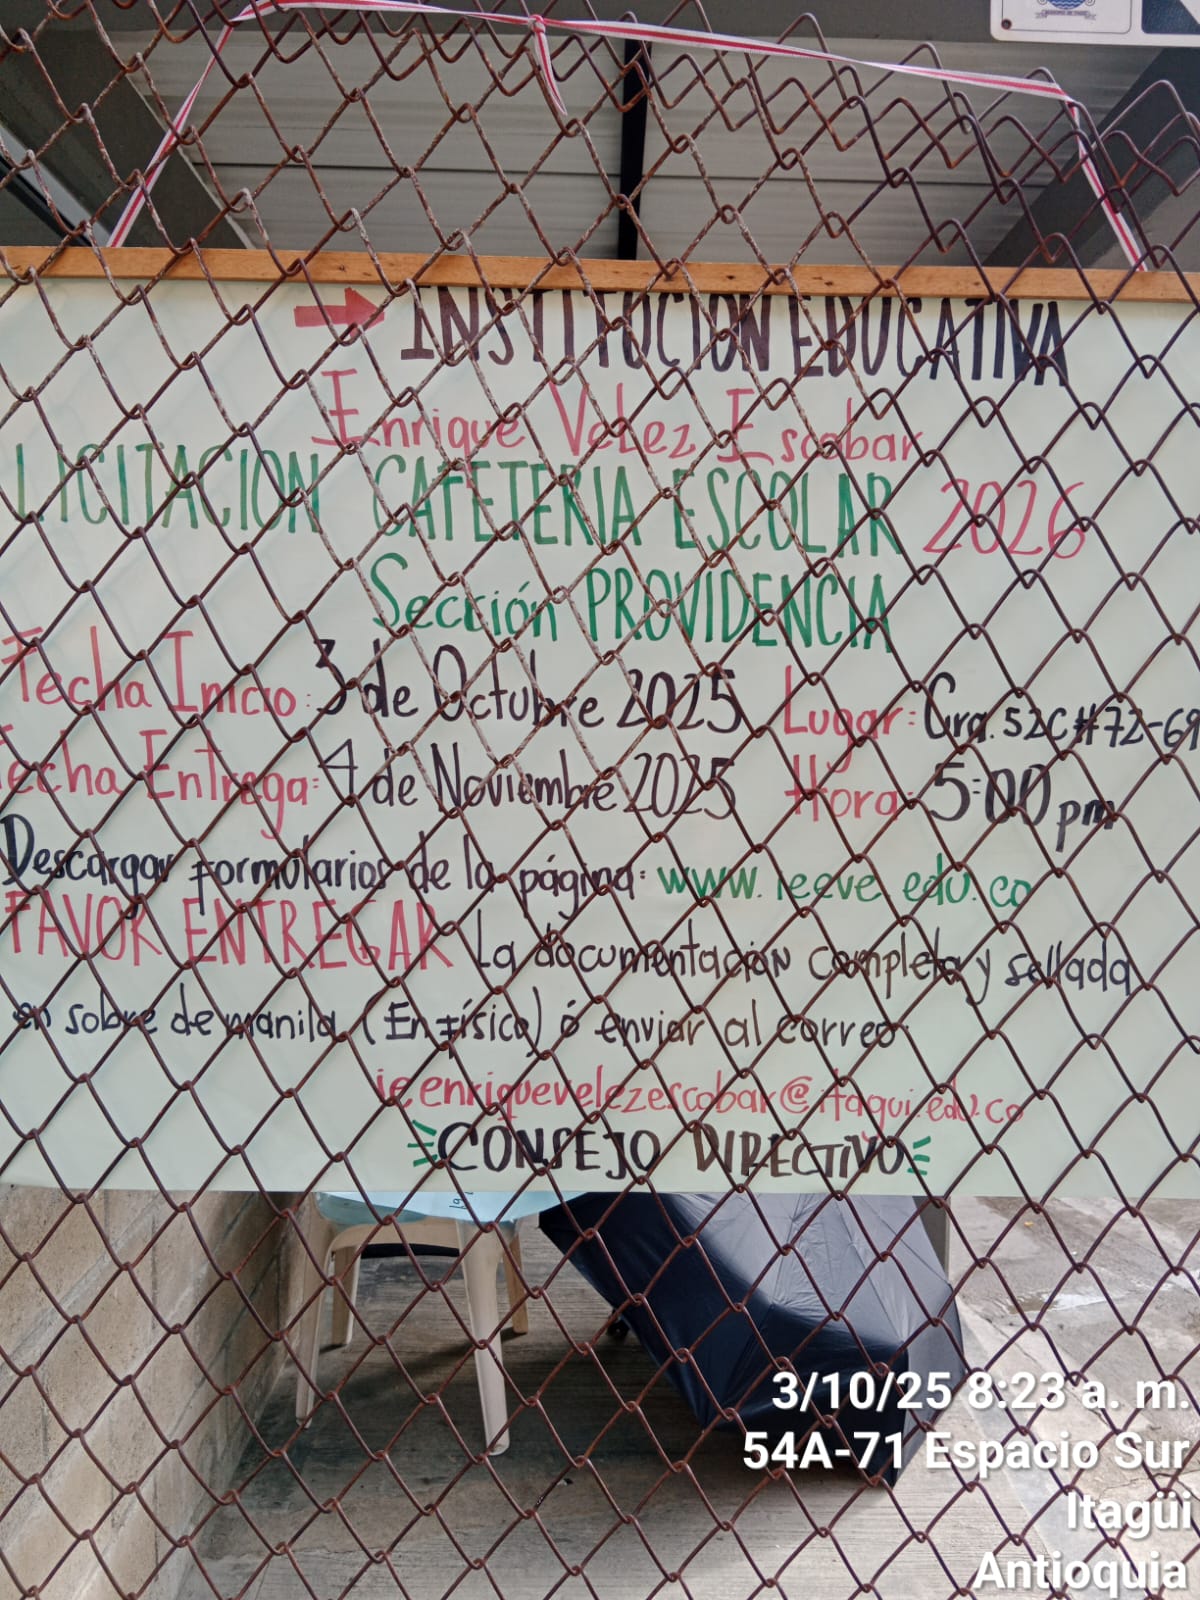 INSTITUCION EDUCATIVA
Enrique Velez Escobar
LICITACION CAFETERIA ESCOLAR 2026
Sección PROVIDENCIA
Fecha Inicio: 3 de Octubre 2025 Lugar: Cra. 52C #72-69
Fecha Entrega: 4 de Noviembre 2025 Hora: 5:00 pm
Descargar formularios de la página: www.ieeve.edu.co
FAVOR ENTREGAR La documentación completa y sellada
en sobre de manila (En físico) ó enviar al correo:
ieenriquevelezescobar@itagui.edu.co
CONSEJO DIRECTIVO
3/10/25 8:23 a. m.
54A-71 Espacio Sur
Itagüi
Antioquia